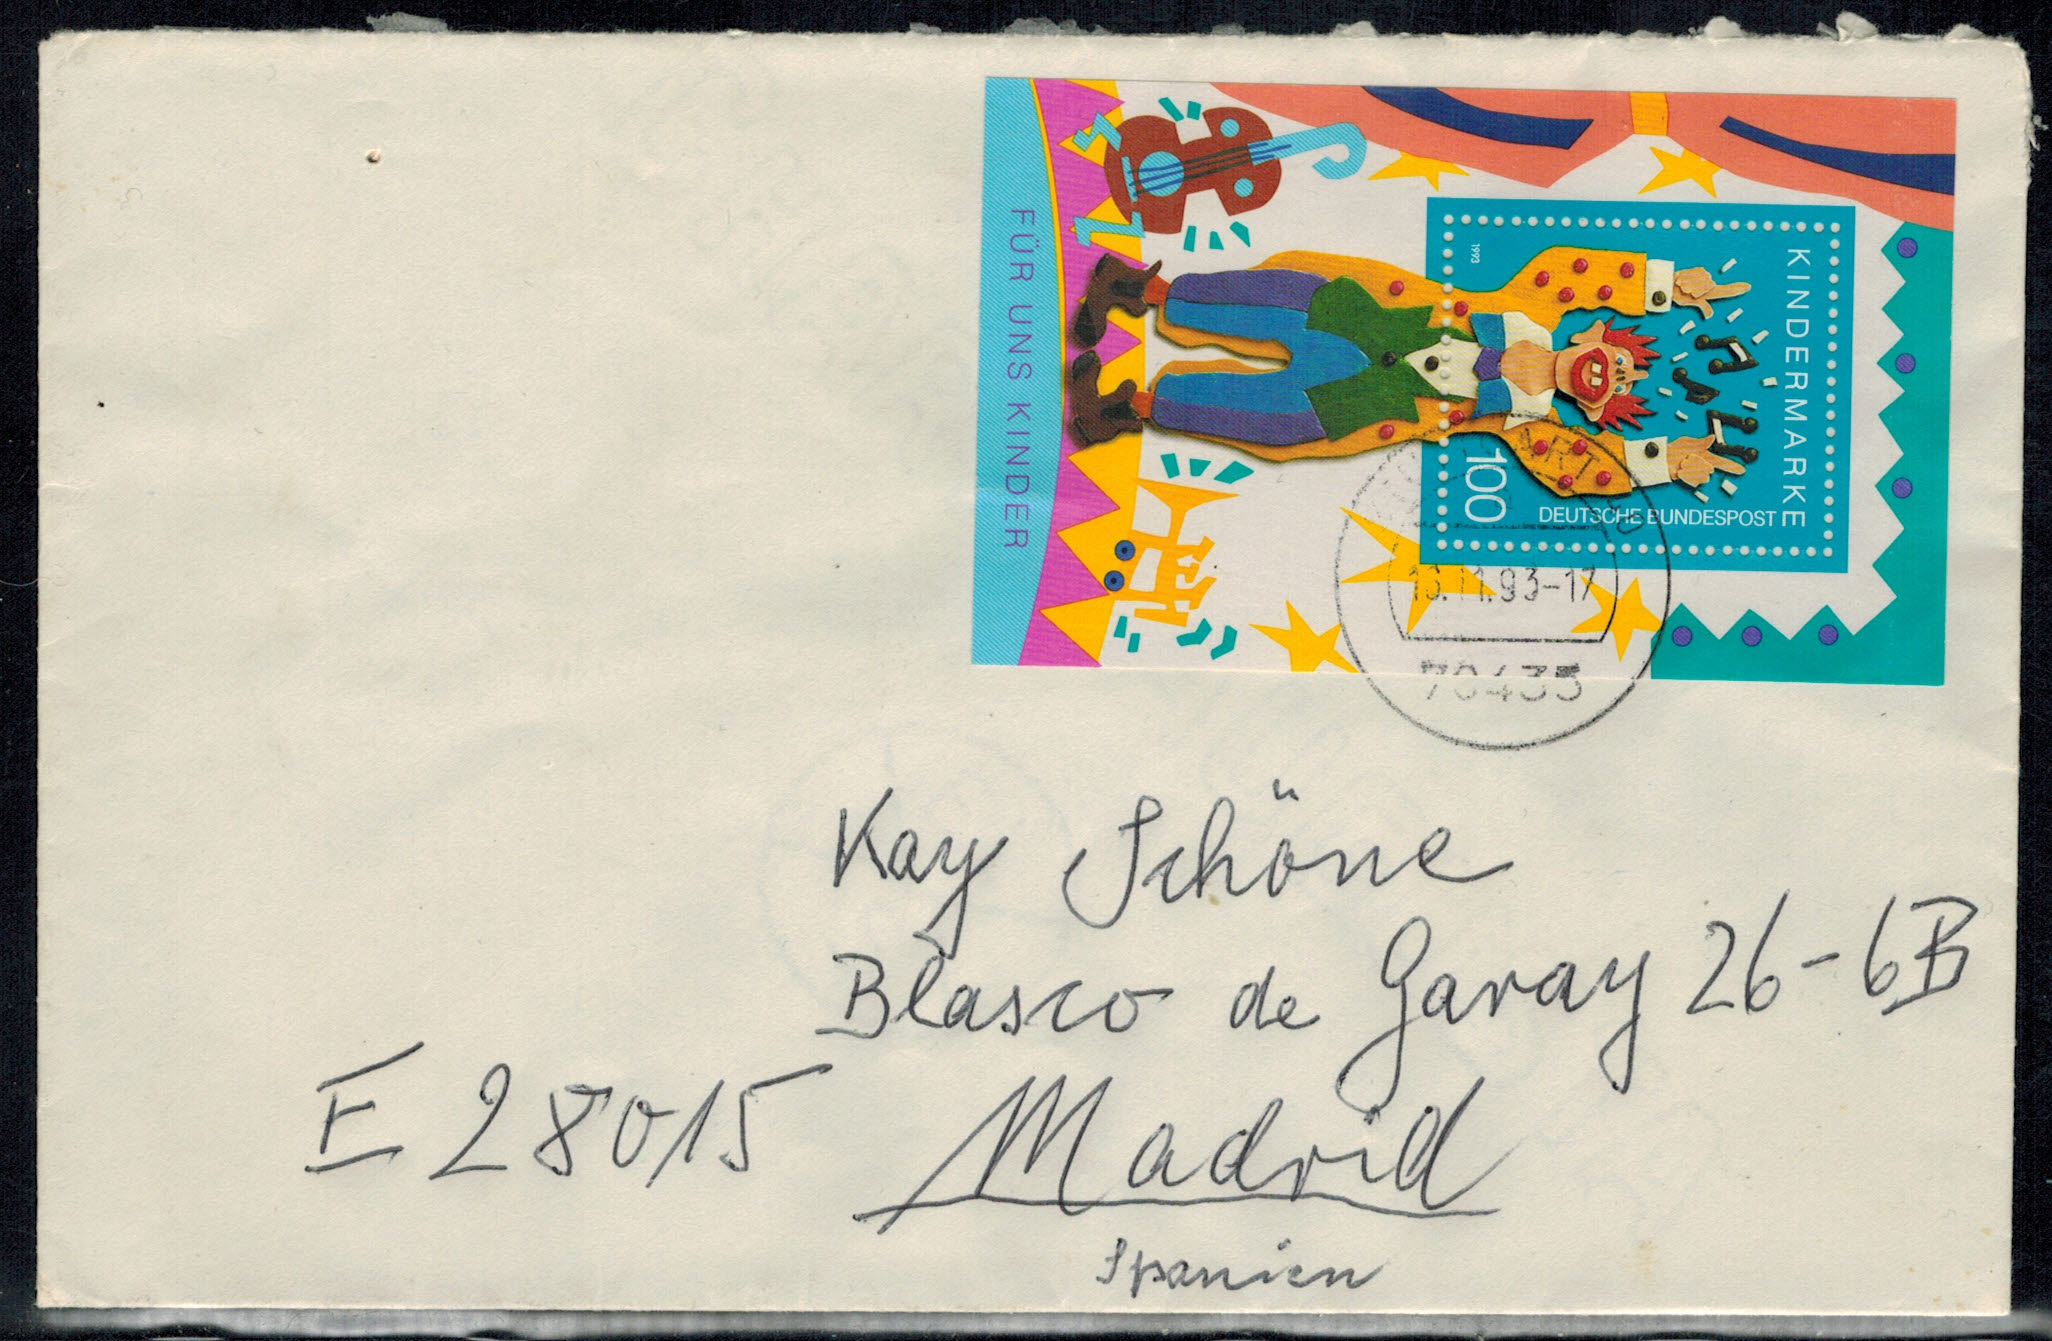 FÜR UNS KINDER
1993
KINDERMARKE
100
DEUTSCHE BUNDESPOST
.93-17
70435
Kay Schöne
Blasco de Garay 26-6B
E 28015 Madrid
Spanien